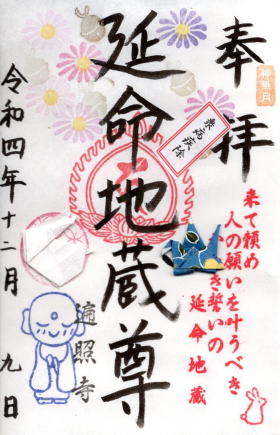 奉拝
衆病疾除
来て頼め
人の願いを叶うべき
き誓いの
延命地蔵
延命地蔵尊
遍照寺
令和四年十二月九日